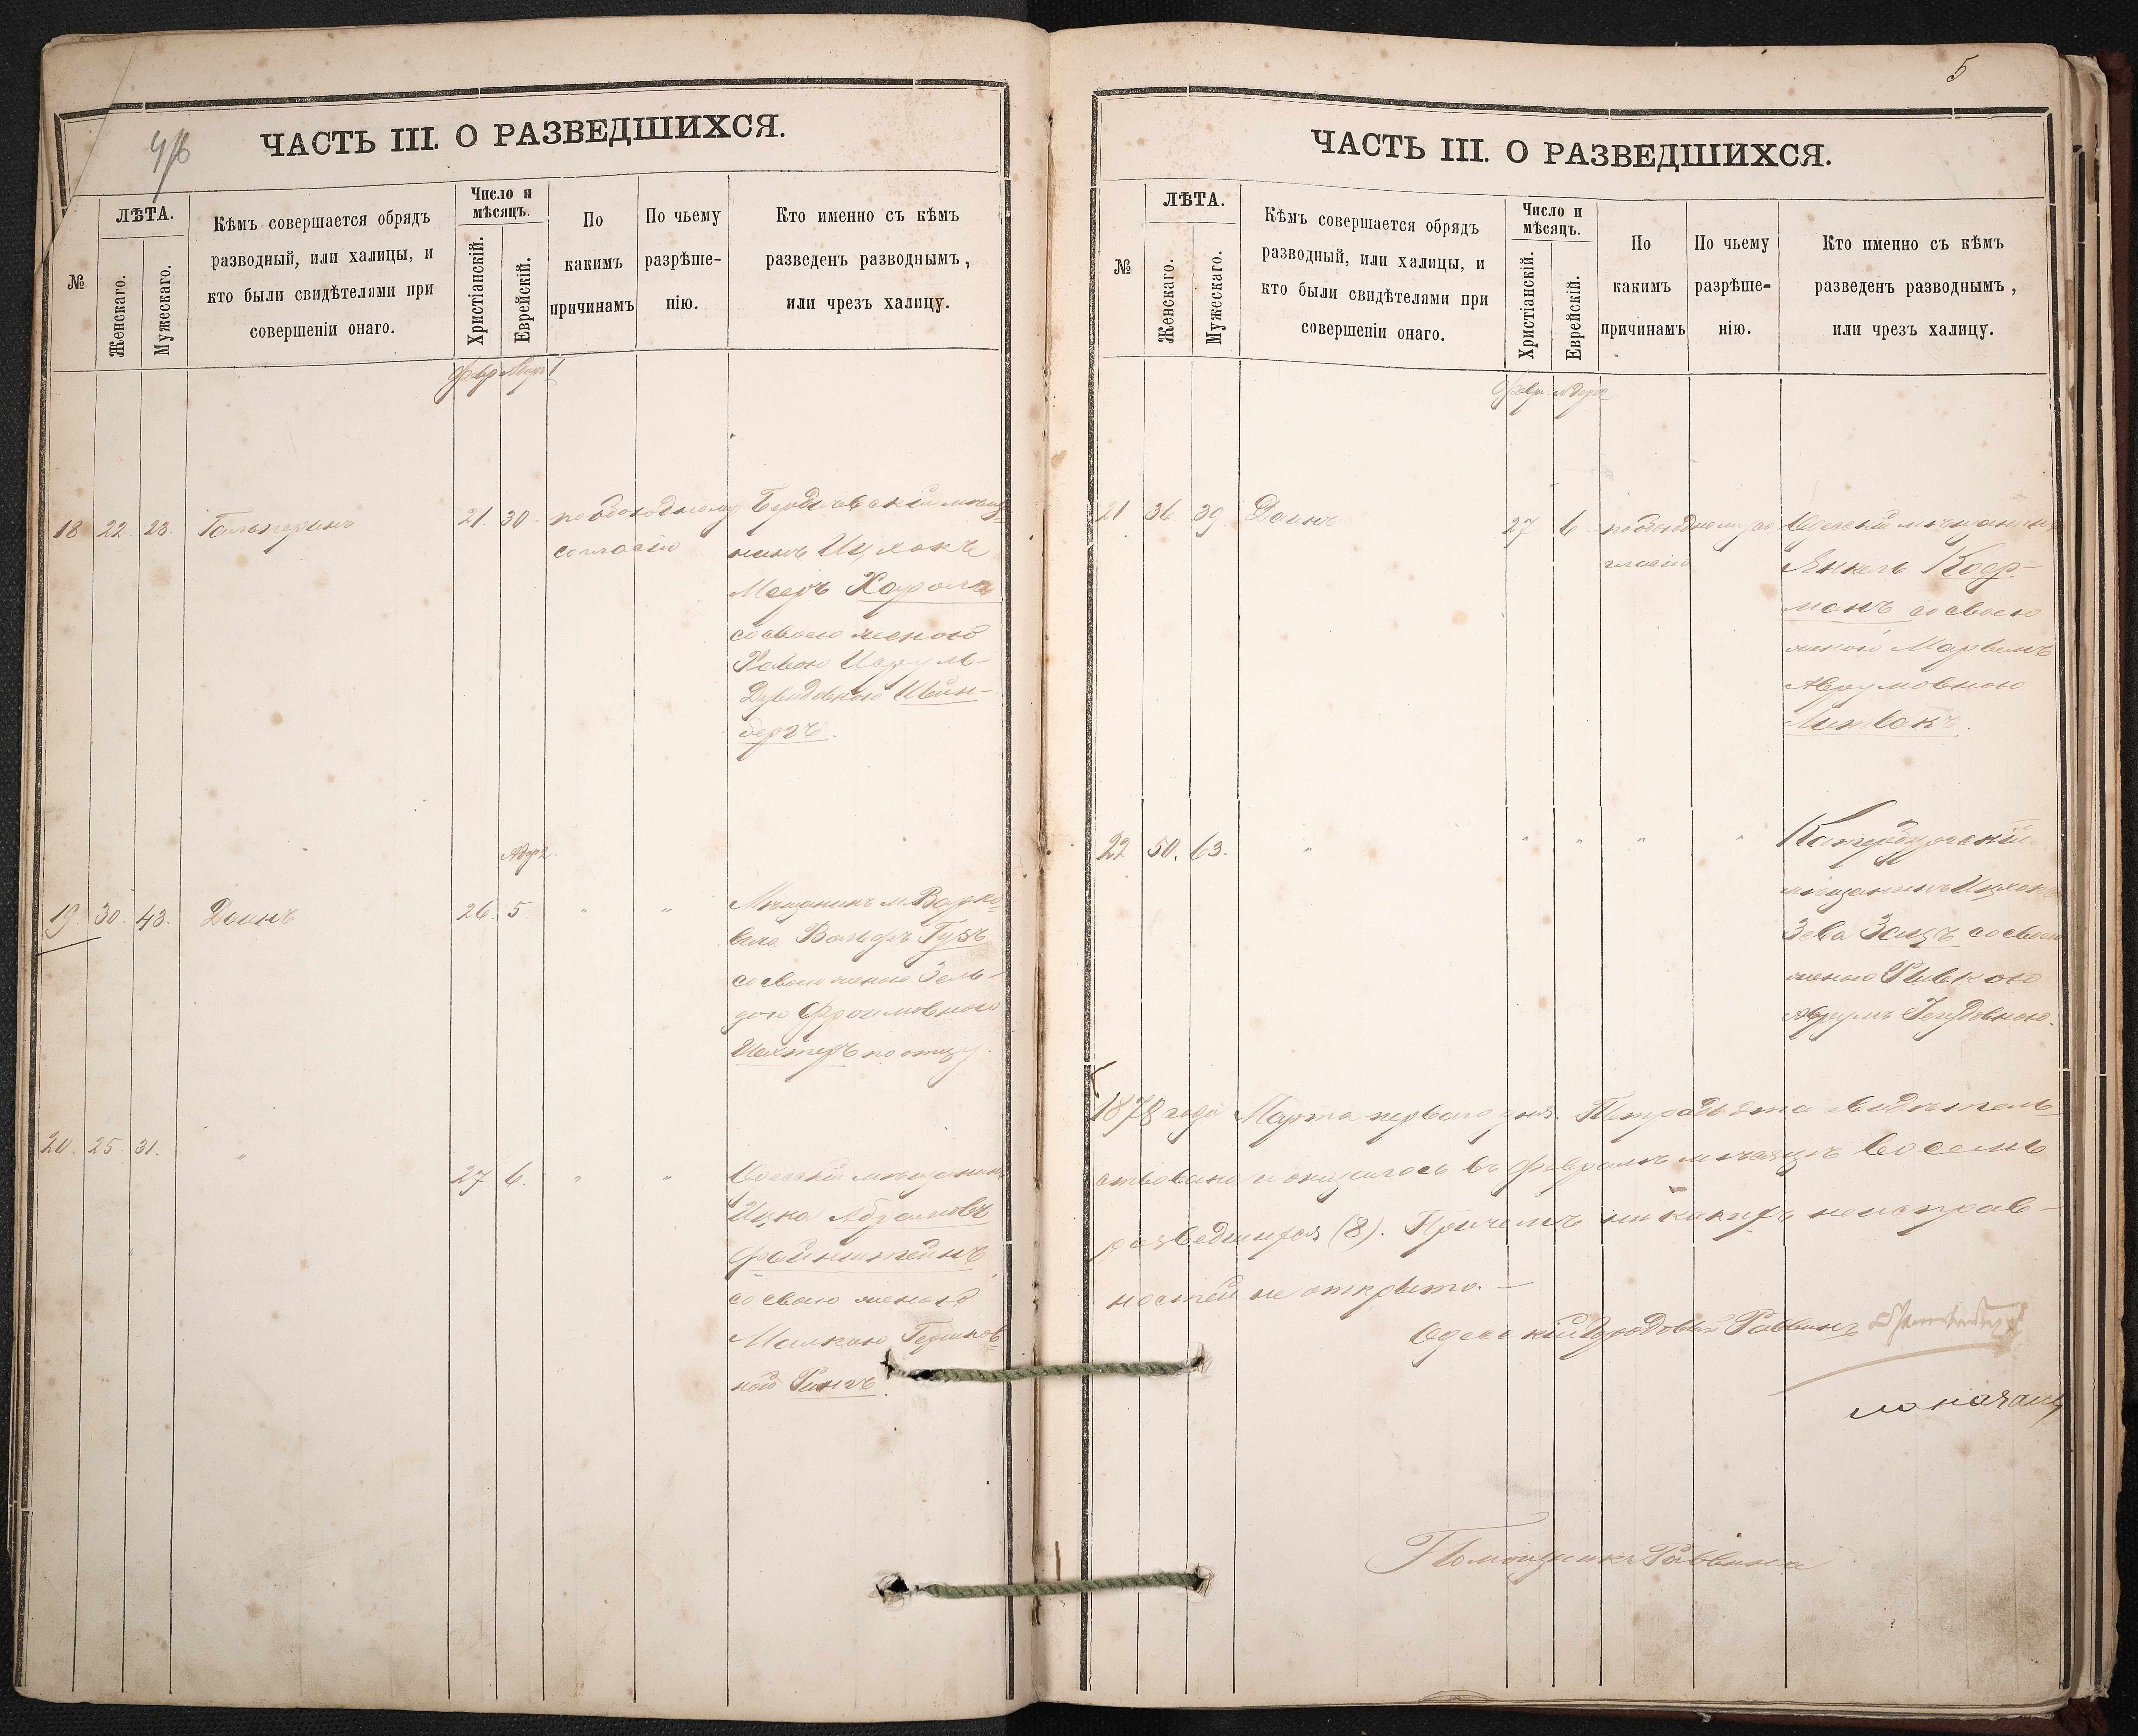 ЧАСТЬ III. О РАЗВЕДШИХСЯ.
№
ЛѢТА.
Женскаго.
Мужескаго.
Кѣмъ совершается обрядъ
разводный, или халицы, и
кто были свидѣтелями при
совершеніи онаго.
Число и
мѣсяцъ.
Христіанскій.
Еврейскій.
По
какимъ
причинамъ
По чьему
разрѣше-
нію.
Кто именно съ кѣмъ
разведенъ разводнымъ,
или чрезъ халицу.
Февр Адаръ 1
18 22. 23. Гальперинъ 21. 30. по обоюдному Бердичовскій мѣща-
согласію нинъ Ицхокъ
Мееръ
со своею женою
Хавою Исруль-
Дувидовною Швин-
бергъ.
Адар 2.
19. 30. 43. Даинъ 26. 5 " " Мѣщанинъ м.
Вольфъ Гузъ
со своею женою Зель-
дою Фроимовною
Шехтеръ по отцу.
20. 25. 31. " 27 6. " " Одесскій мѣщанинъ
Ицко
Файнштейнъ
со своею женою
Малкою Гершков-
ною Рингъ.
5
ЧАСТЬ III. О РАЗВЕДШИХСЯ.
№
ЛѢТА.
Женскаго.
Мужескаго.
Кѣмъ совершается обрядъ
разводный, или халицы, и
кто были свидѣтелями при
совершеніи онаго.
Число и
мѣсяцъ.
Христіанскій.
Еврейскій.
По
какимъ
причинамъ
По чьему
разрѣше-
нію.
Кто именно съ кѣмъ
разведенъ разводнымъ,
или чрезъ халицу.
Февр. Адаръ 2
21 36 39. Даинъ 27 6 по обоюдному со- Одесскій мѣщанинъ
гласію Янкель Коф-
манъ со своею
женою
Аврумовною
Литвакъ.
22 50. 63. " " " " "
мѣщанинъ Ицхокъ
Зева Зацъ со своею
женою Рывкою
Аврумъ Іегудовною.
1878 года Марта перваго дня. Тетрадь эта свидѣтель-
ствована и оказалось въ Февралѣ мѣсяцѣ восемь
разведшихся (8). Причемъ никакихъ неисправ-
ностей не открыто. —
Одесскій Городовый Раввинъ
Помощникъ Раввина